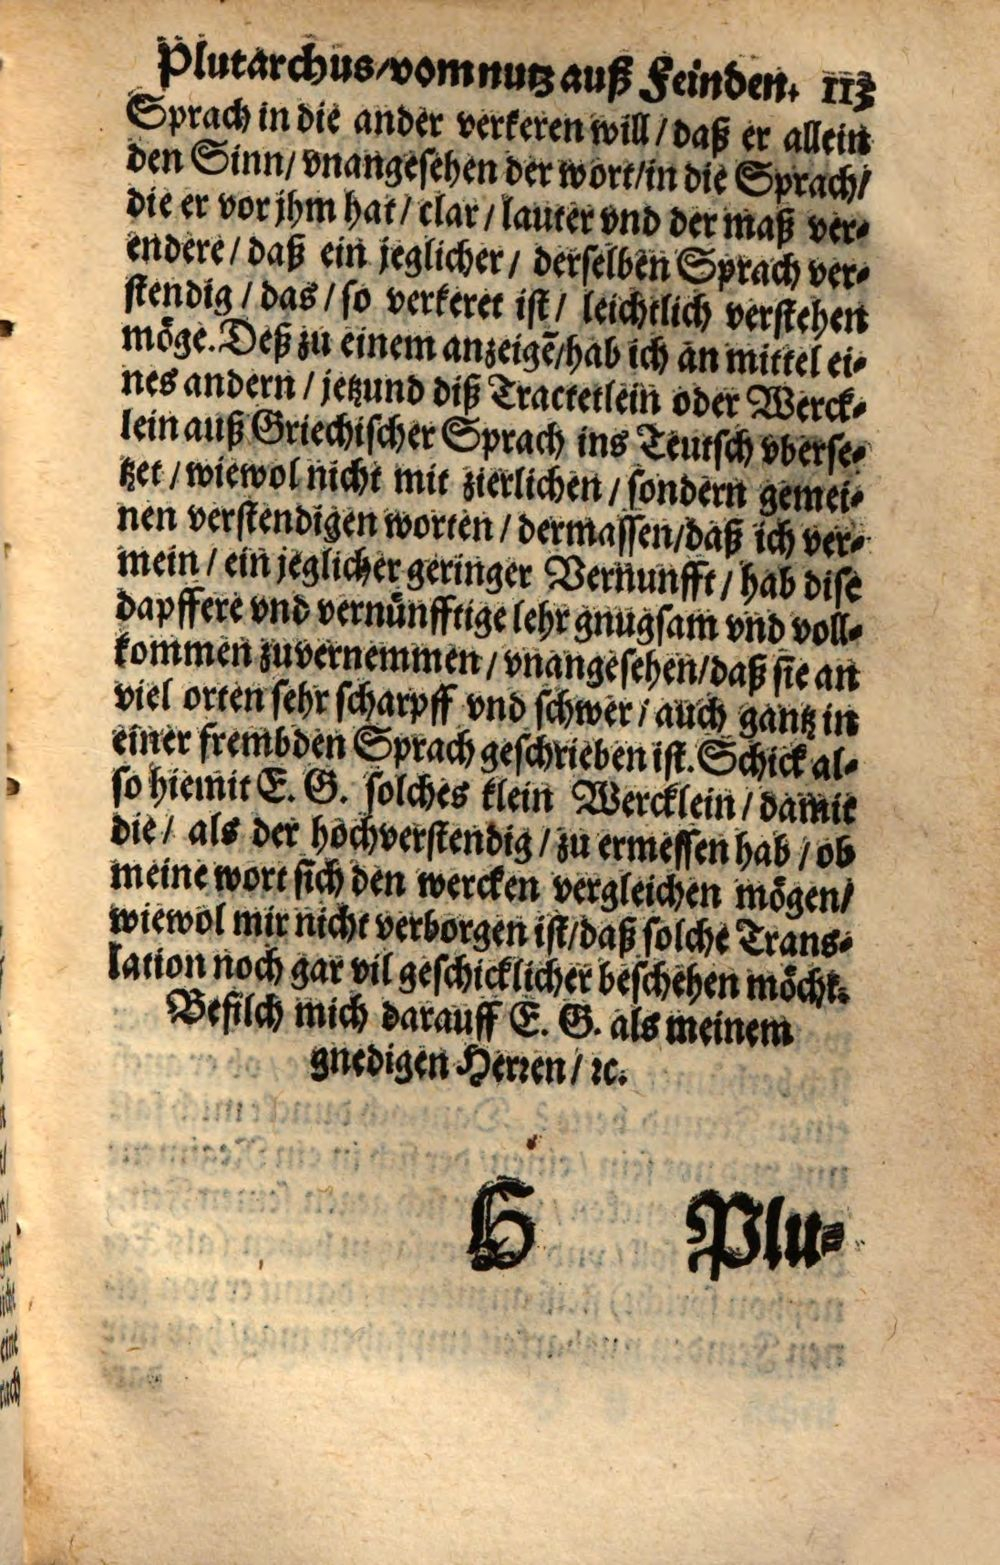 Plutarchus/vom nutz auß Feinden. 113
Sprach in die ander verkeren will / daß er allein
den Sinn/ vnangesehen der wort/in die Sprach/
die er vor jhm hat / clar / lauter vnd der maß ver-
endere / daß ein jeglicher / derselben Sprach ver-
stendig / das / so verkeret ist / leichtlich verstehen
möge. Deß zu einem anzeigẽ/hab ich an mittel ei-
nes andern / jetzund diß Tractetlein oder Werck-
lein auß Griechischer Sprach ins Teutsch vberse-
tzet / wiewol nicht mit zierlichen / sondern gemei-
nen verstendigen worten / dermassen/daß ich ver-
mein / ein jeglicher geringer Vernunfft / hab dise
dapffere vnd vernünfftige lehr gnugsam vnd voll-
kommen zuvernemmen / vnangesehen/daß sie an
viel orten sehr scharpff vnd schwer / auch gantz in
einer frembden Sprach geschrieben ist. Schick al-
so hiemit E. G. solches klein Wercklein / damit
die / als der hochverstendig / zu ermessen hab / ob
meine wort sich den wercken vergleichen mögen/
wiewol mir nicht verborgen ist/daß solche Trans-
lation noch gar vil geschicklicher beschehen möcht.
Befilch mich darauff E. G. als meinem
gnedigen Herren / ꝛc.
H Plu-